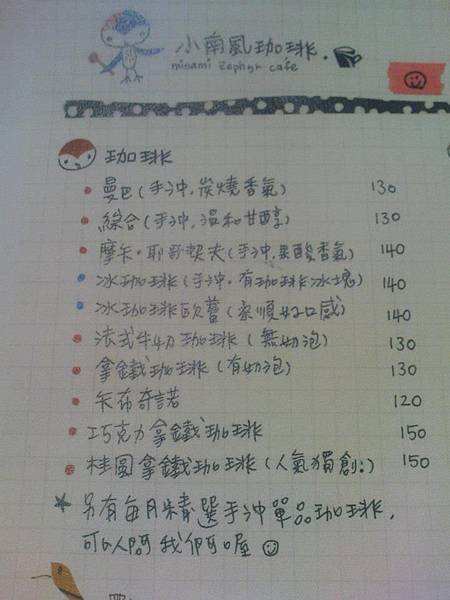 小南風珈琲.
minami zephyr cafe
珈琲
曼巴(手沖.炭燒香氣) 130
綜合(手沖,溫和甘醇) 130
摩卡·耶哥契夫(手沖.果酸香氣) 140
冰珈琲(手沖.有珈琲冰塊) 140
冰珈琲歐蕾(柔順好口感) 140
法式牛奶珈琲(無奶泡) 130
拿鐵珈琲(有奶泡) 130
卡布奇諾 120
巧克力拿鐵珈琲 150
桂圓拿鐵珈琲(人氣獨創!) 150
另有每月精選手沖單品珈琲,
可以問我們喔